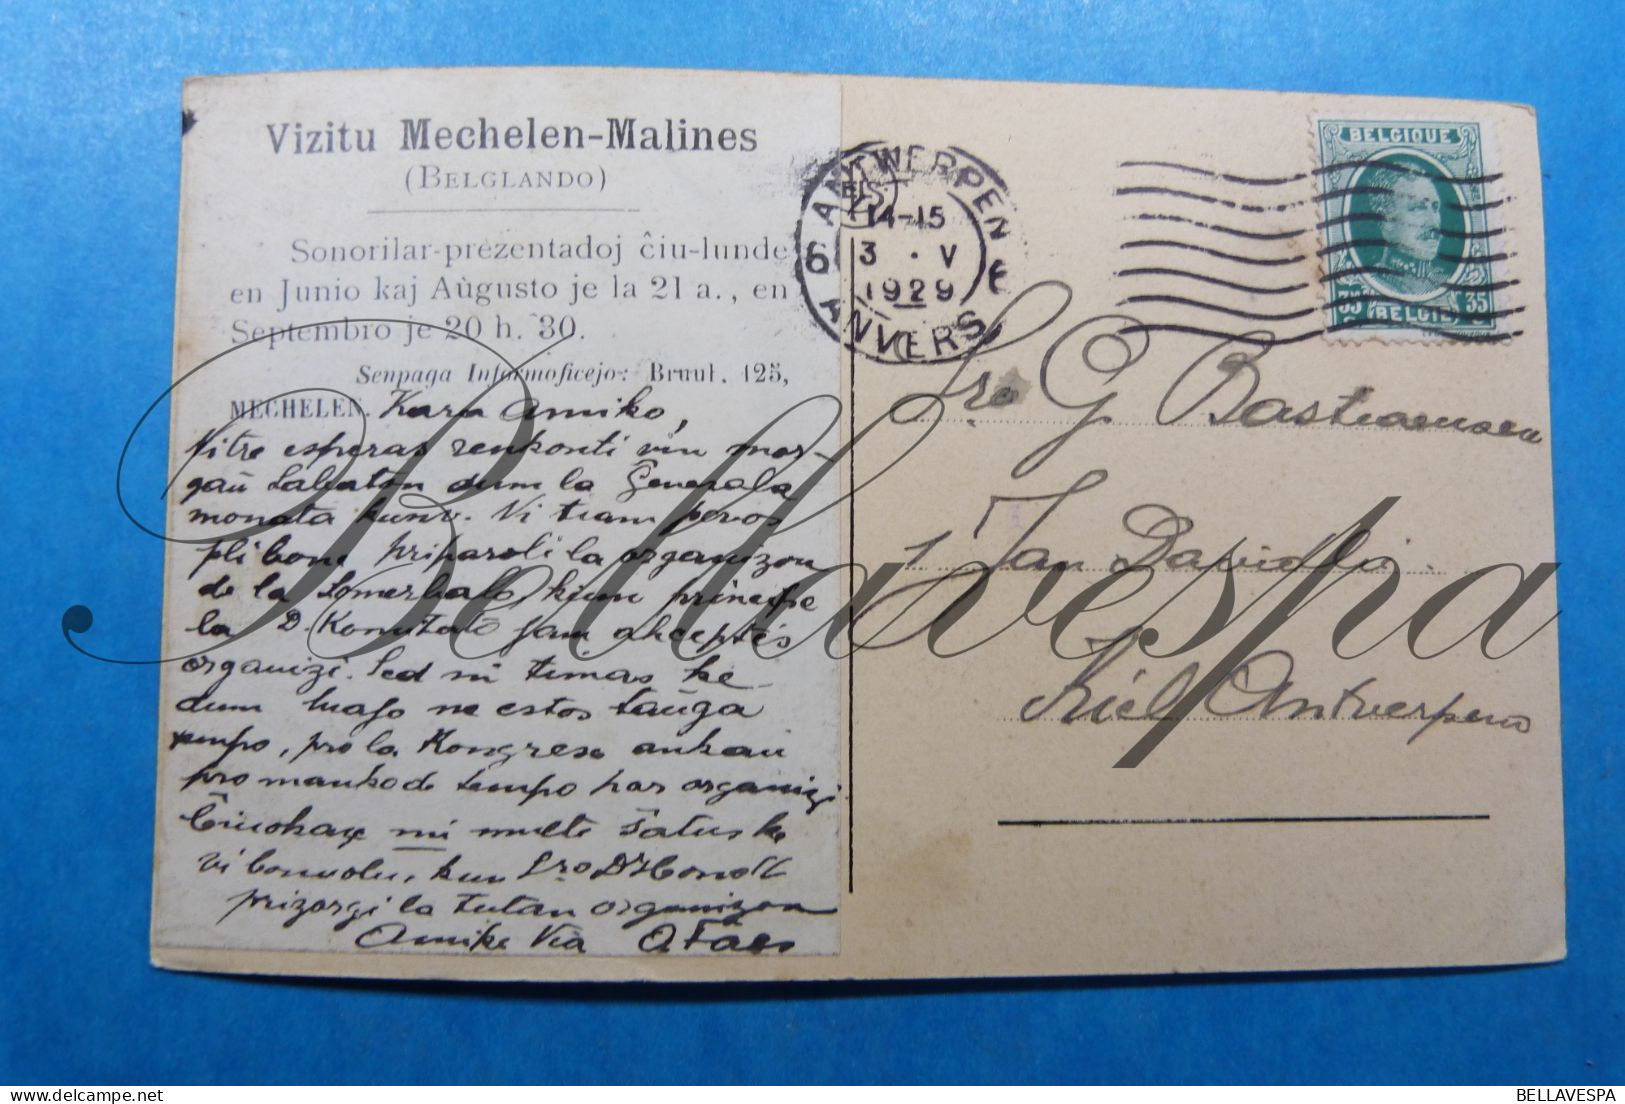 Vizitu Mechelen-Malines
(BELGLANDO)
Sonorilar-prezentadoj ĉiu-lunde
en Junio kaj Aŭgusto je la 21 a., en
Septembro je 20 h. 30.
Senpaga Informoficejo: Bruul. 125,
MECHELEN. Kara Amiko,
Mi tre esperas renkonti vin mor-
gaŭ sabaton dum la Generala
monata kunv. Ni tiam povos
pli bone priparoli la organizon
de la Somerbalo, kiun principe
la D. Komitato jam akceptis
organizi. Sed mi timas ke
dum Majo ne estos taŭga
tempo, pro la Kongreso ankaŭ
pro manko de tempo por organizi
Ĉiuokaze mi multe ŝatus ke
vi bonvolu, kun Sro D'Hondt
prizorgi la tutan organizon
Amike Via A Faes
ANTWERPEN
14-15
3 · V
1929
6 6
ANVERS
BELGIQUE
35 35
BELGIË
Sro G. Bastiaensen
1 Jan Davidlei
Kiel Antwerpeno
Bellavespa
BELLAVESPA